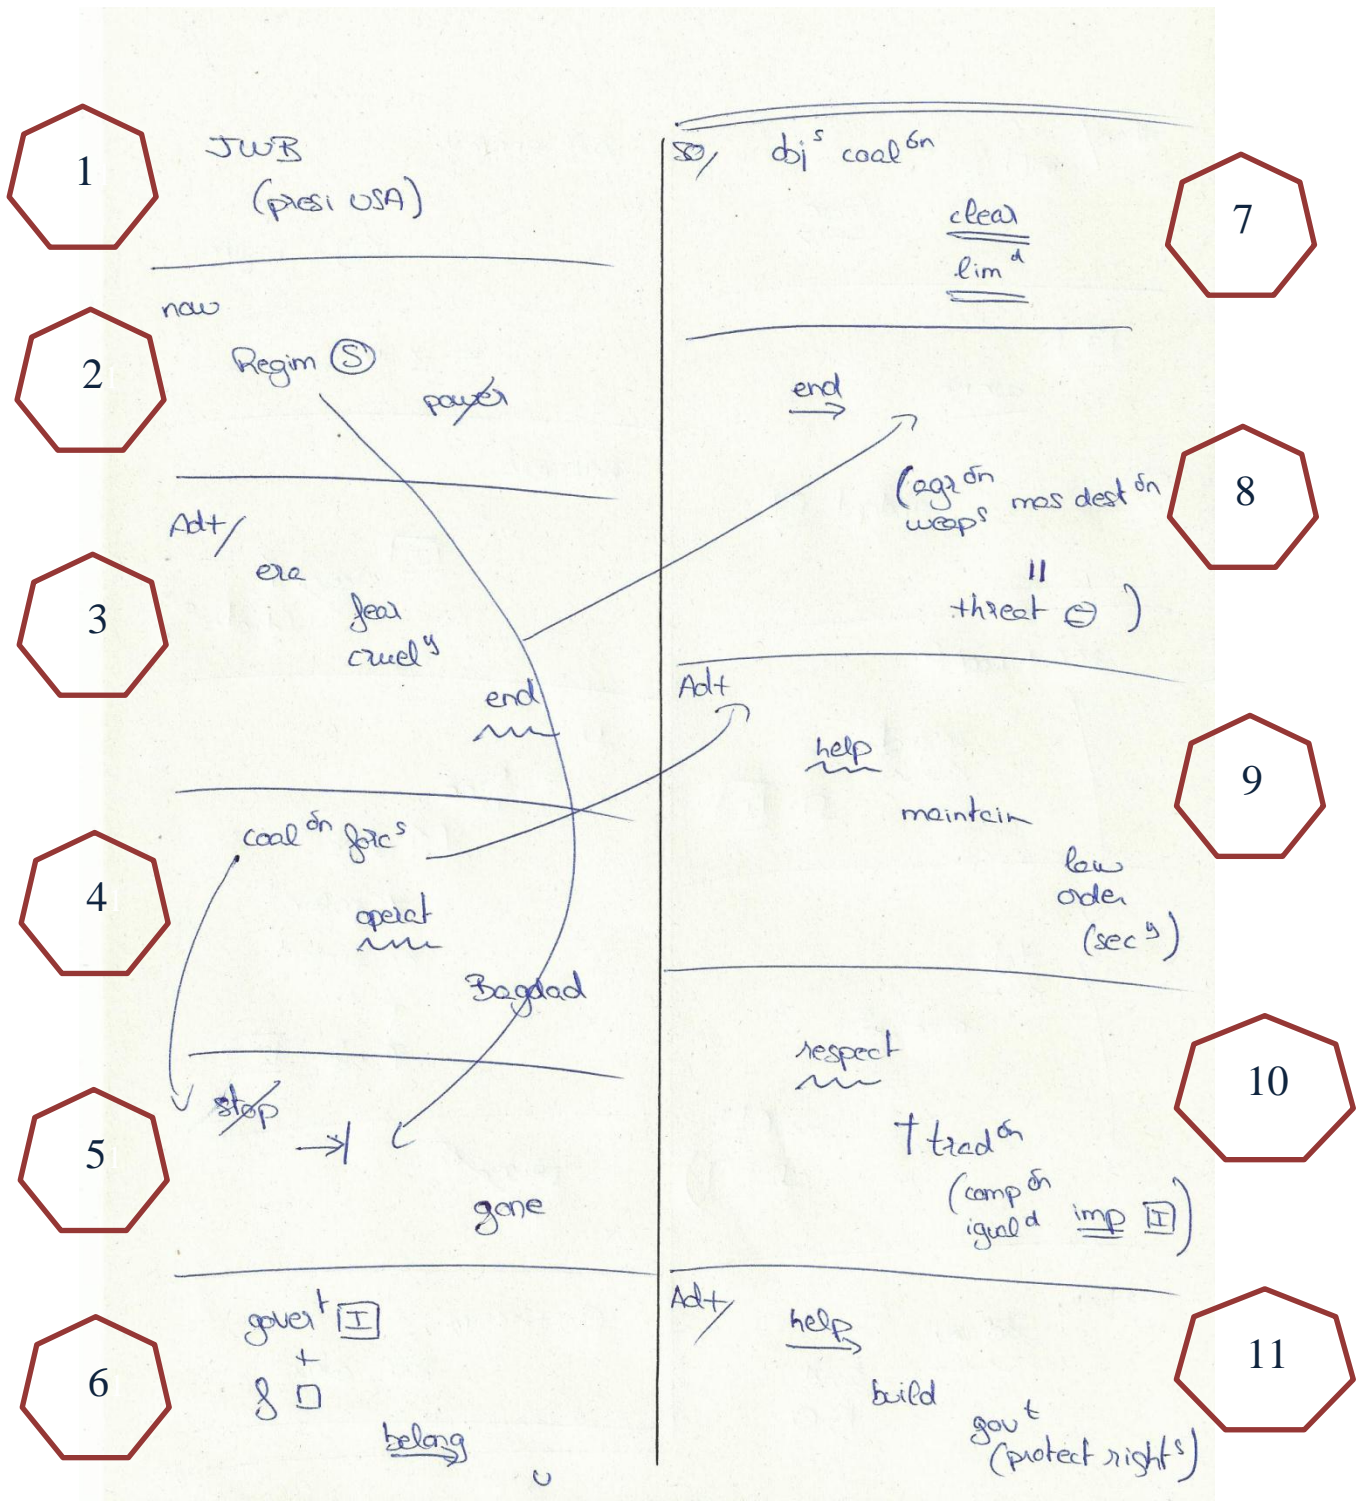 1
JWB
(presi USA)
2
now
Regim Ⓢ
power
3
Ad+/
era
fear
cruel^y
end
4
coal^ón forc^s
operat
Bagdad
5
stop
→|
gone
6
gover^t [I]
+
belong
U
7
SO/ obj^s coal^ón
clear
lim^d
8
end
(agr^ón
weap^s mas dest^ón
=
threat ⊖)
9
Ad+
help
maintain
law
order
(sec^y)
10
respect
↑ trad^ón
(comp^ón
igual^d imp [I])
11
Ad+/
help
build
gov^t
(protect right^s)